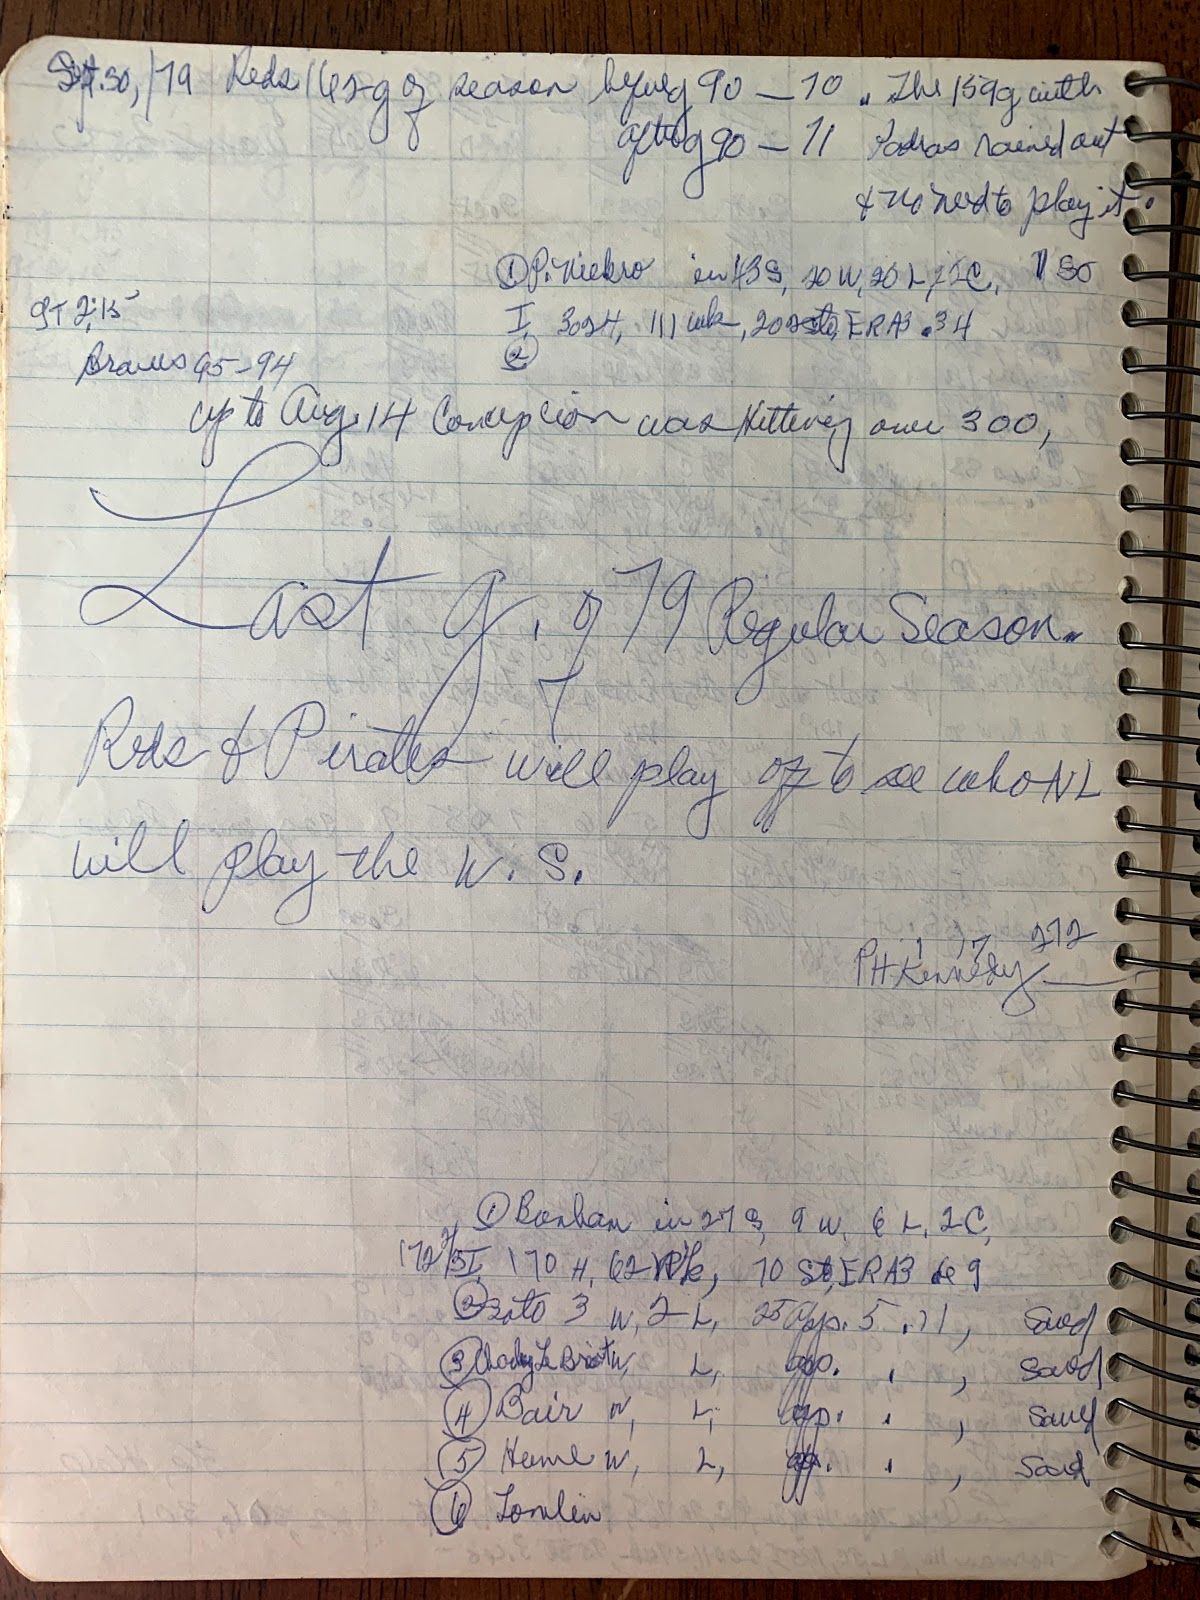 Sept. 30, /79 Reds 162 g of season before g 90 — 70. The 159 g with
after g 90 — 71 Padras rained out
& no need to play it.
① P. Niekro in 43 S, 20 W, 20 L, C, 1 SO
gT 2:15
I, 302 H, 111 wk, 202 sto, ERA 3.34
②
Braves 65-94
up to Aug. 14 Concepcion was Hitting over 300,
Last g. of 79 Regular Season.
Reds & Pirates will play off to see who NL
will play the W. S.
1 17 272
PH Kennedy —
① Bonham in 27 S, 9 W, 6 L, 2 C,
172 2/3 I, 170 H, 62 Wk, 70 St, ERA 3
② Soto 3 W, 2 L, 25 App. 5.11, Saved
③ Charley Le W, L, app. . , Saved
④ Bair W, L, app. . , Saved
⑤ Hume W, L, app. . , Saved
⑥ Tomlin